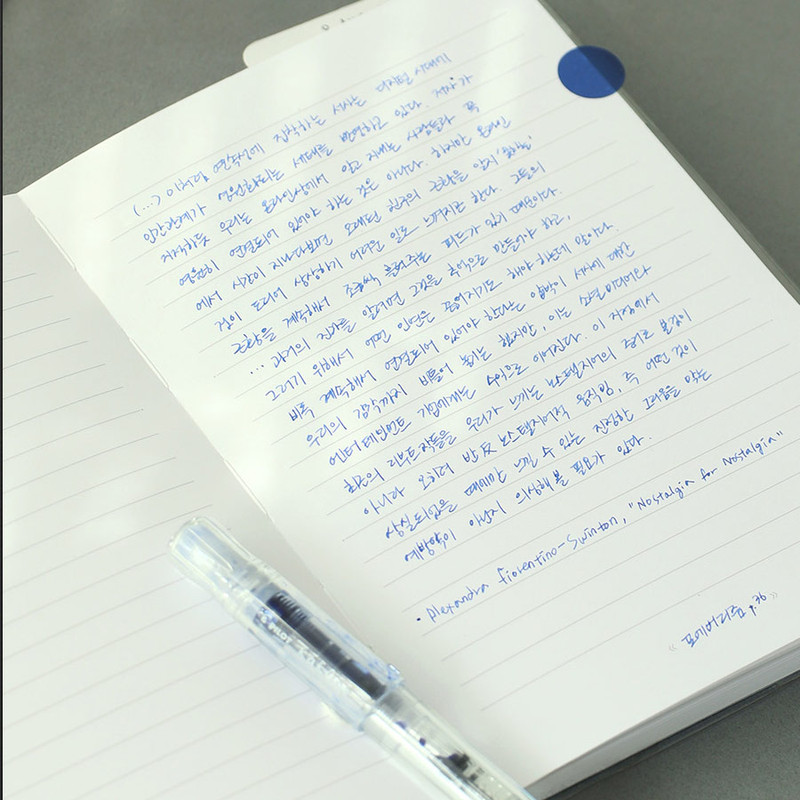 (...) 이처럼 연속성에 집착하는 서사는 디지털 시대에
인간관계가 영원화되는 세태를 반영하고 있다. 저자가
지적하듯 우리는 온라인상에서 알고 지내는 사람들과 꼭
영원히 연결되어 있어야 하는 것은 아니다. 하지만 온라인
에서 시간이 지나다보면 오래된 친구의 근황을 알지 '못하는'
것이 도리어 상상하기 어려운 일로 느껴지곤 한다. 그들의
근황을 계속해서 조금씩 흘려주는 피드가 있기 때문이다.
... 과거의 진가를 알려면 그것을 추억으로 만들어야 하고,
그러기 위해서 어떤 인연은 끊어지기도 해야 하는데 말이다.
비록 계속해서 연결되어 있어야 한다는 압박이 서사에 대한
우리의 감각까지 비틀어 놓기는 했지만, 이는 소셜미디어와
엔터테인먼트 기업에게는 수익으로 이어진다. 이 지점에서
최근의 리부트작들을 우리가 느끼는 노스텔지어의 주어로 볼것이
아니라 오히려 반反노스텔지어적 움직임, 즉 어떤 것이
상실되었을 때에만 느낄 수 있는 진정한 그리움을 막는
예방약이 아닌지 의심해 볼 필요가 있다.
• Alexandra Fiorentino-Swinton, "Nostalgia for Nostalgia"
《포에버리즘》 p.36
PILOT